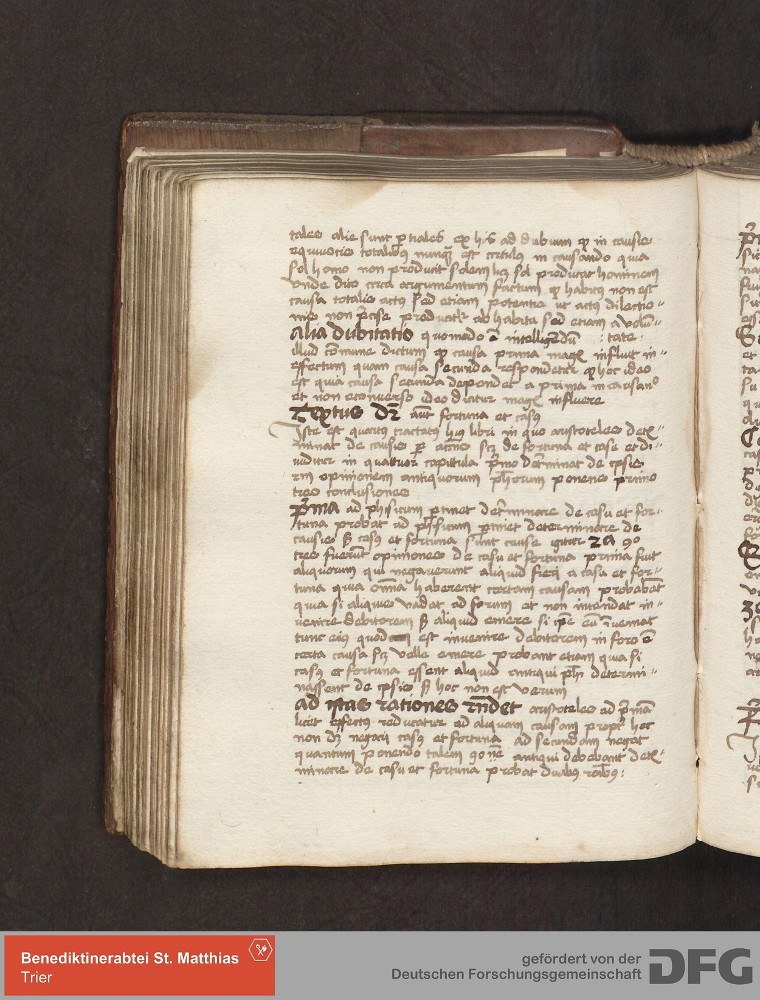 tales alie sunt ptiales ex his ad dubium qp in causis
equivocis totalibus nunqm est certitudo in causando quia
sol homo non producit solem licet sol producat hominem
vnde dico circa argumentum factum qp habitus non est
causa totalis actus sed etiam potentia ut actus dilectio-
nis non pcise producitur ab habitu sed etiam a volun-
alia dubitatio quomodo est intelligendum : tate :
illud comune dictum qp causa prima magis influit in
effectum quam causa secunda respondetur qp hoc ideo
est quia causa secunda dependet a prima in causando
et non econverso ideo dicitur magis influere
Textus dr aut fortuna et casus
Iste est quartus tractatus huius libri in quo aristoteles deter-
minat de causis per accidens scz de fortuna et casu et di-
viditur in quattuor capittula primo determinat de ipsis
opinionem antiquorum phorum ponens primo
tres conclusiones
prima ad phisicum ptinet determinare de casu et for-
tuna probat ad phisicum ptinet determinare de
causis sed casus et fortuna sunt cause igitur 2a 9o
tres fuerunt opiniones de casu et fortuna prima fuit
aliquorum qui negaverunt aliquid fieri a casu et for-
tuna quia omnia haberent certam causam probabant
quia si aliquis vadat ad forum et non intendat in-
venire debitorem sed aliquid emere si ipse eum inveniat
tunc eius quoddam est invenire debitorem in foro est
certa causa scz velle emere probant etiam quia si
casus et fortuna essent aliquid antiqui phi determi-
nassent de ipsis sed hoc non est verum
ad istas rationes respondet aristoteles ad primam
licet effectus reducatur ad aliquam causam propter hoc
non debet negari casus et fortuna ad secundam negat
quantum ponendo talem 9onem antiqui debebant deter-
minare de casu et fortuna probat duabus rationibus :
Benediktinerabtei St. Matthias
Trier
gefördert von der
Deutschen Forschungsgemeinschaft
DFG